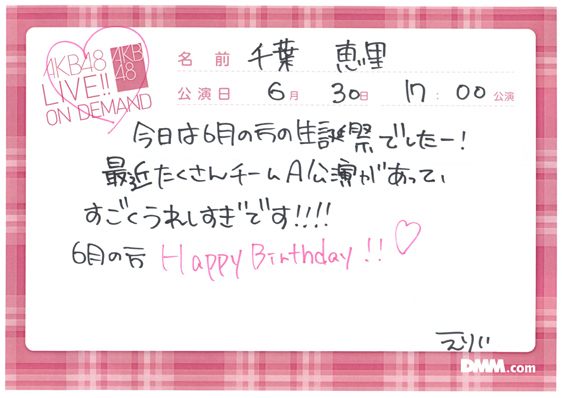 AKB48
LIVE!!
ON DEMAND
AKB
48
名前 千葉 恵里
公演日 6月 30日 17:00 公演
今日は6月の方の生誕祭でしたー!
最近たくさんチームA公演があって、
すごくうれしすぎです!!!!
6月の方 Happy Birthday!!♡
えりい
DMM.com